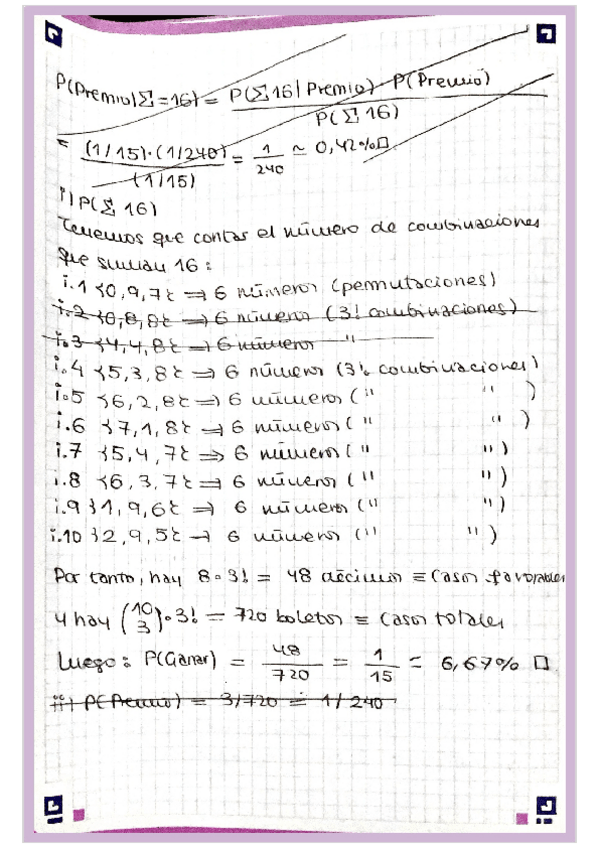 P(Premio|Σ=16) = P(Σ16|Premio) · P(Premio) / P(Σ16)
= (1/15)·(1/240) / (1/15) = 1/240 ≃ 0,42% □.
i) P(Σ 16)
Tenemos que contar el número de combinaciones
que suman 16:
i.1 {0,9,7} ⇒ 6 números (permutaciones)
i.2 {0,8,8} ⇒ 6 números (3! combinaciones)
i.3 {4,4,8} ⇒ 6 números "
i.4 {5,3,8} ⇒ 6 números (3! combinaciones)
i.5 {6,2,8} ⇒ 6 números (" ")
i.6 {7,1,8} ⇒ 6 números (" ")
i.7 {5,4,7} ⇒ 6 números (" ")
i.8 {6,3,7} ⇒ 6 números (" ")
i.9 {1,9,6} ⇒ 6 números (" ")
i.10 {2,9,5} → 6 números (" ")
Por tanto, hay 8·3! = 48 décimos ≡ Casos favorables
y hay (10 3)·3! = 720 boletos ≡ Casos totales
Luego: P(Ganar) = 48/720 = 1/15 = 6,67% □
ii) P(Premio) = 3/720 = 1/240